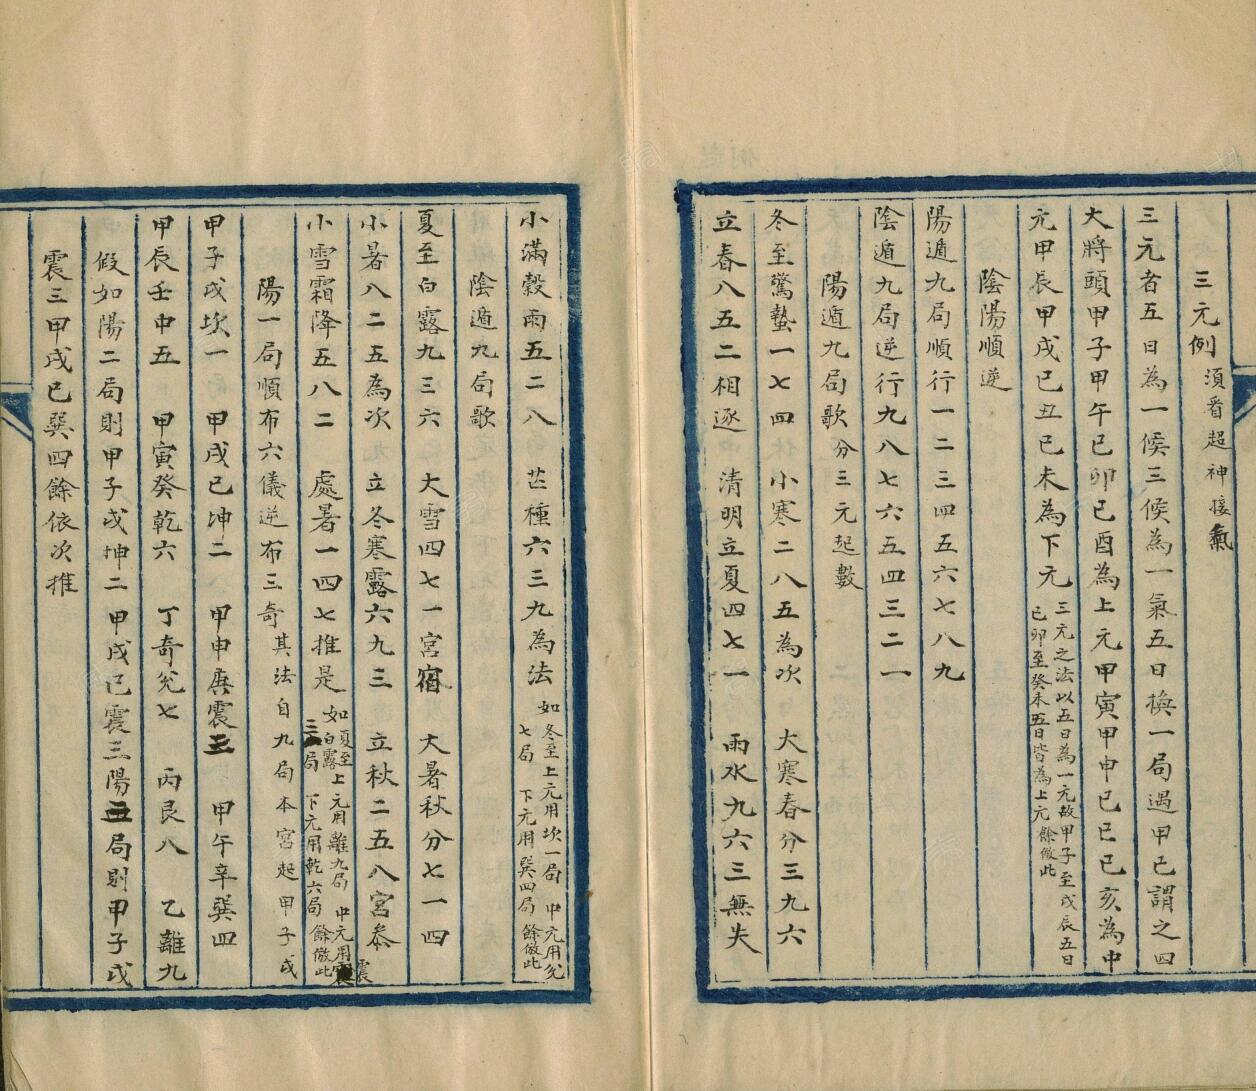 三元例 須看超神接氣
三元者五日為一候三候為一氣五日換一局遇甲己謂之四
大將頭甲子甲午己卯己酉為上元甲寅甲申己巳己亥為中
元甲辰甲戌己丑己未為下元 三元之法以五日為一元故甲子至戌辰五日
己卯至癸未五日皆為上元餘倣此
陰陽順逆
陽遁九局順行一二三四五六七八九
陰遁九局逆行九八七六五四三二一
陽遁九局歌 分三元起數
冬至驚蟄一七四 小寒二八五為次 大寒春分三九六
立春八五二相逐 清明立夏四七一 雨水九六三無失
小滿穀雨五二八 芒種六三九為法 如冬至上元用坎一局 中元用兌
七局 下元用巽四局 餘倣此
陰遁九局歌
夏至白露九三六 大雪四七一宮宿 大暑秋分七一四
小暑八二五為次 立冬寒露六九三 立秋二五八宮叅
小雪霜降五八二 處暑一四七推是 如夏至白露上元用離九局 中元用震
三局 下元用乾六局 餘倣此
陽一局順布六儀逆布三奇 其法自九局本宮起甲子戌
甲子戌坎一 甲戌己坤二 甲申庚震三 甲午辛巽四
甲辰壬中五 甲寅癸乾六 丁奇兌七 丙艮八 乙離九
假如陽二局則甲子戌坤二甲戌己震三陽三局則甲子戌
震三甲戌己巽四餘依次推